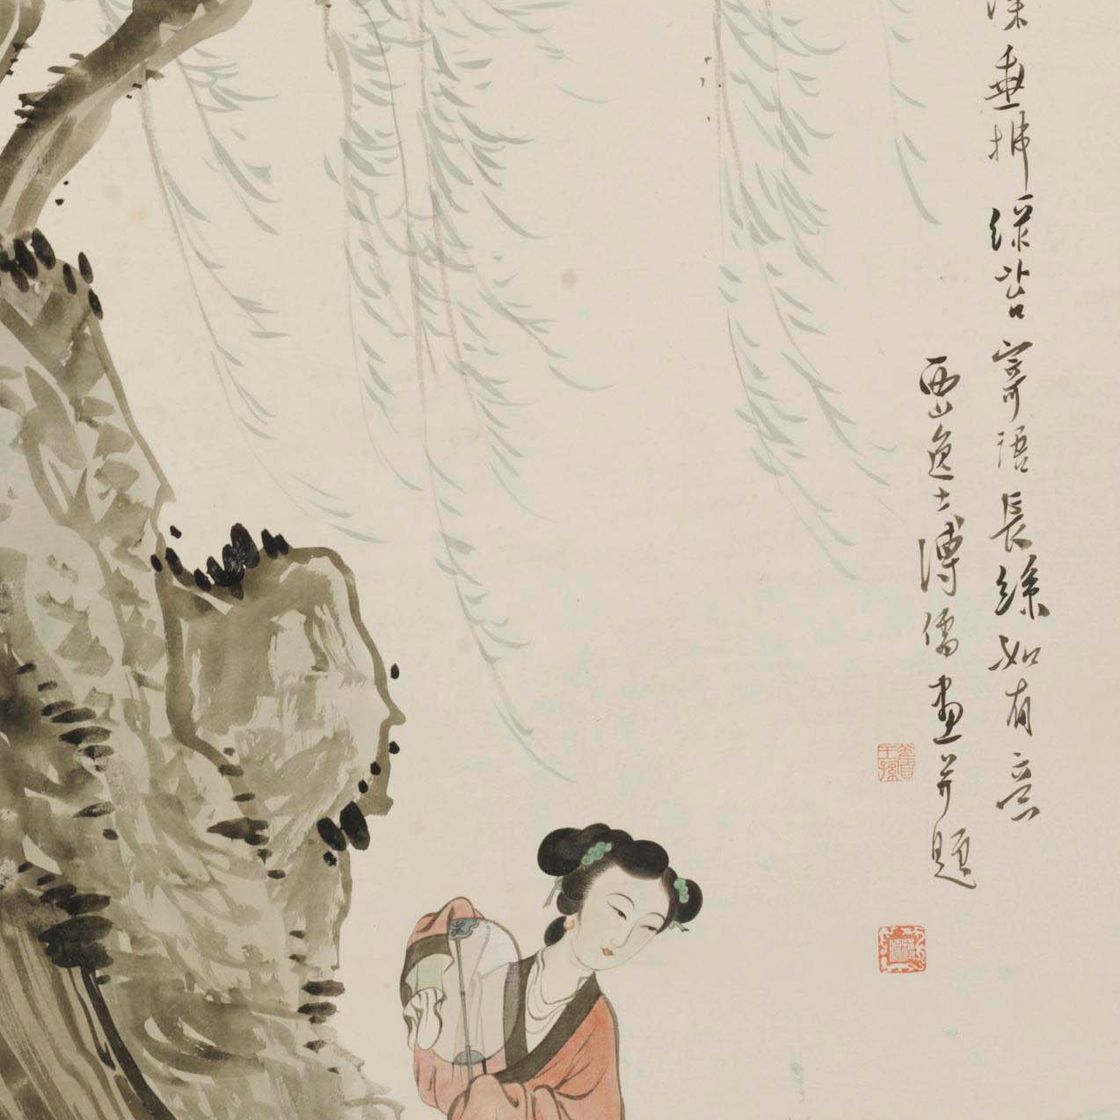 垂拂綠苔寄語長條如有意
西山逸士溥儒畫并題
舊王孫